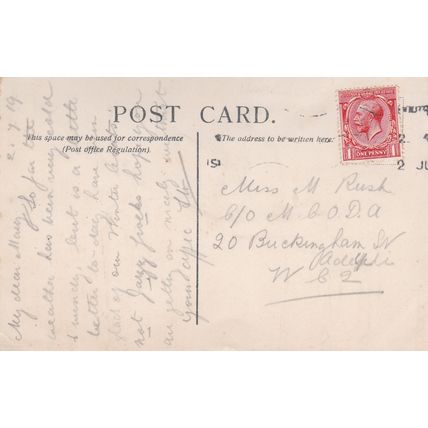 POST CARD.
This space may be used for correspondence
(Post office Regulation).
The address to be written here:
ONE PENNY
1 1
2 JU
Miss M Rush
c/o M. C. O. D. A
20 Buckingham St
Adelphi
W C 2
2.7.19
My dear Mary
So far the
weather has been very cold
& windy, but is a little
better to-day, have on
lots of our Winter
not Jazzy frocks hope you
are getting on nicely